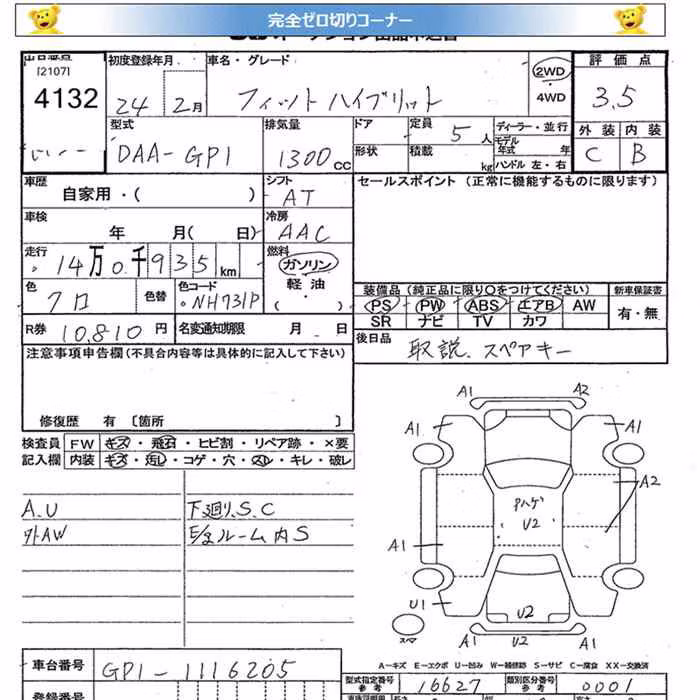 完全ゼロ切りコーナー
[2107]
4132
初度登録年月
24 2月
車名・グレード
フィットハイブリット
2WD
4WD
評価点
3.5
外装 内装
C B
型式
DAA-GP1
排気量
1300 CC
ドア
形状
定員 5 人
積載 kg
ディーラー・並行
モデル年式 年
ハンドル 左・右
車歴
自家用・( )
シフト
AT
セールスポイント (正常に機能するものに限ります)
車検
年 月( 日)
冷房
AAC
走行
14万0千935km
燃料
ガソリン
軽油
( )
色
クロ
色替
色コード
NH731P
装備品 (純正品に限り○をつけてください)
PS PW ABS エアB AW
SR ナビ TV カワ
新車保証書
有・無
R券 10,810円
名変通知期限 月 日
後日品
取説、スペアキー
注意事項申告欄(不具合内容等は具体的に記入して下さい)
修復歴 有 〔箇所 〕
検査員 FW キズ・飛石・ヒビ割・リペア跡・×要
記入欄 内装 キズ・汚し・コゲ・穴・スレ・キレ・破レ
A.U
外AW
下廻り、S、C
E/gルーム内S
A1 A2
A1 A1
Pハゲ
U2
A2
A1
U1
U2
スペア
A1 U2 A1
A-キズ E-エクボ U-凹み W-補修跡 S-サビ C-腐食 XX-交換済
車台番号
GP1-1116205
登録番号
型式指定番号
参考
16627
類別区分番号
参考
0001